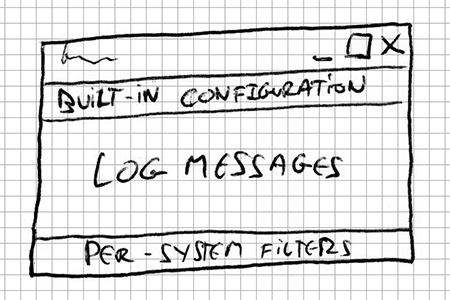 BUILT-IN CONFIGURATION
LOG MESSAGES
PER-SYSTEM FILTERS